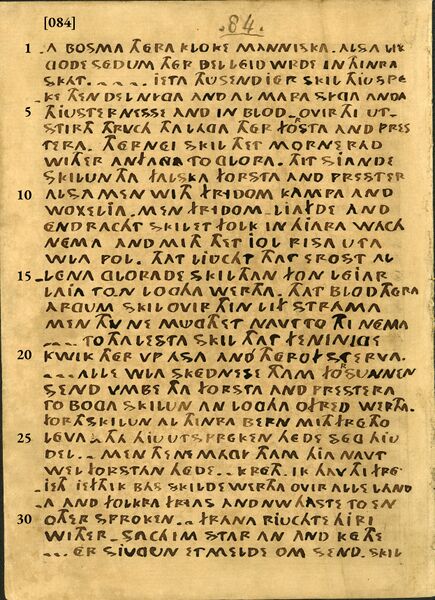 [084]
84.
1 A BOSMA THERA KLOKE MANNISKA. ALSA LIK
GODE SEDUM THER BELLEID WRDE IN THINRA
SKAT. .... IETA THUSEND IER SKIL THIU SPE
KE THEN DEL NIGA AND AL MARA SIGA ANDA
5 THIUSTERNESSE AND IN BLOD. OVIR THI UT-
STIRTH THRUCH THA LAGA THER FORSTA AND PRES
TERA. THERNEI SKIL THET MORNERAD
WITHER ANFANGA TO GLORA. THIT SIANDE
SKILUN THA FALSKA FORSTA AND PRESTER
10 ALSAMEN WITH FRIDOM KAMPA AND
WOXELIA. MEN FRIDOM. LIAFDE AND
ENDRACHT SKIL ET FOLK IN HIARA WACH
NEMA AND MITH THET IOL RISA UTA
WLA POL. THAT LIUCHT THAT EROST AL
15 LENA GLORADE SKIL THAN FON LEIAR
LAIA TO N LOGHA WERTHA. THAT BLOD THERA
ARGUM SKIL OVIR THIN LIF STRAMA
MEN THU NE MUGTHET NAVT TO THI NEMA
... TO THA LESTA SKIL THAT FENINIGE
20 KWIK THER UP ASA AND THEROF STERVA.
... ALLE WLA SKEDNESE THAM FORSUNNEN
SEND UMBE THA FORSTA AND PRESTERA
TO BOGA SKILUN AN LOGHA OFRED WERTHA.
FORTH SKILUN AL THINRA BERN MITH FRETHO
25 LEVA. THA HIU UTSPREKEN HEDE SEG HIU
DEL.. MEN THENE MAGI THAM HIA NAVT
WEL FORSTAN HEDE.. KRETH. IK HAV THI FRE
IETH IK BAS SKILDE WERTHA OVIR ALLE LAND
A AND FOLKRA FRIAS AND NW HASTE TO EN
30 OTHER SPROKEN... FRANA RIUCHTE HIRI
WITHER. SACH IM STAR AN AND KETHE
... ER SIUGUN ETMELDE OM SEND. SKIL